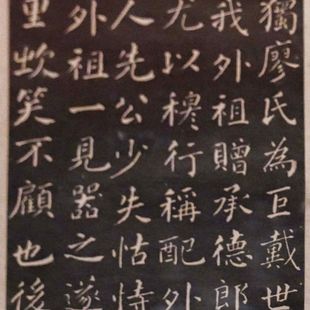 獨廖氏為巨戴世
我外祖贈承德郎
尤以穆行稱配外
人先公少失怙恃
外祖一見器之遂
里笑不顧也後